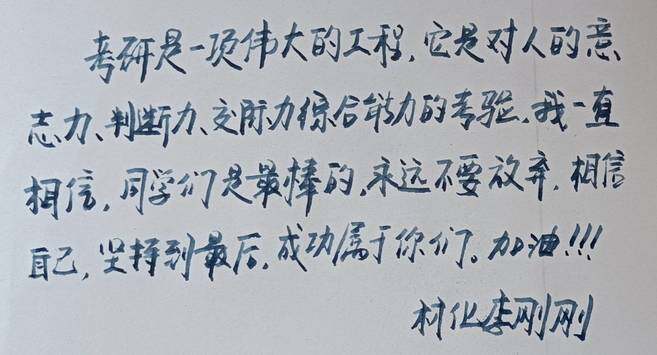 考研是一项伟大的工程,它是对人的意
志力、判断力、交际力综合能力的考验,我一直
相信,同学们是最棒的,永远不要放弃,相信
自己,坚持到最后,成功属于你们。加油!!!
材化李刚刚